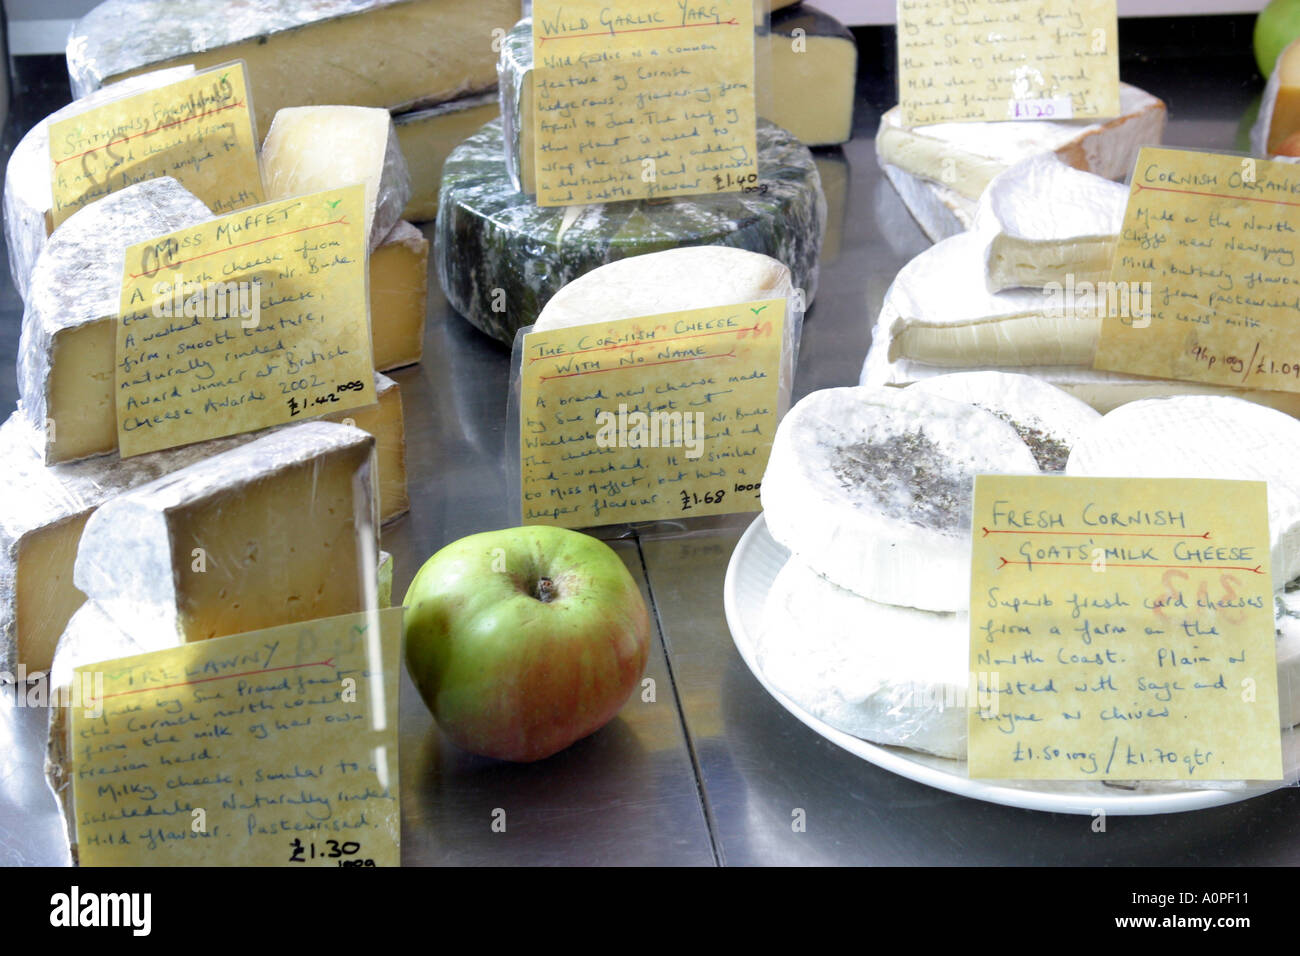 WILD GARLIC YARG
Wild Garlic is a common
feature of Cornish
hedgerows, flowering from
April to June. The leaf of
this plant is used to
wrap the cheese, adding
a distinctive
and subtle flavour £1.40
100g
by the family
near St
the milk of their own herd
Mild when young, good
flavour
Pasteurised £1.20
STITHIANS FARMHOUSE
A
cheese from
unique to
slightly
MISS MUFFET
A Cornish cheese from
the north coast, Nr. Bude.
A washed curd cheese,
firm, smooth texture,
naturally rinded.
Award winner at British
Cheese Awards 2002. 100g
£1.42
THE CORNISH CHEESE
WITH NO NAME
A brand new cheese made
by Sue Proudfoot at
Whalesborough Farm, Nr. Bude.
The cheese is curd and
rind-washed. It is similar
to Miss Muffet, but has a
deeper flavour. £1.68 100g
CORNISH ORGANIC
Made on the North
Cliffs near Newquay
Mild, buttery flavour
made from pasteurised
organic cows' milk.
96p 100g/£1.09
FRESH CORNISH
GOATS' MILK CHEESE
Superb fresh curd cheeses
from a farm on the
North Coast. Plain or
dusted with sage and
thyme or chives.
£1.50 100g/£1.70 qtr.
TRELAWNY
Made by Sue Proudfoot on
the Cornish north coast
from the milk of her own
fresian herd.
Milky cheese, similar to a
swaledale. Naturally rinded
Mild flavour. Pasteurised.
£1.30
100g
alamy
alamy
Image ID: A0PF11
www.alamy.com